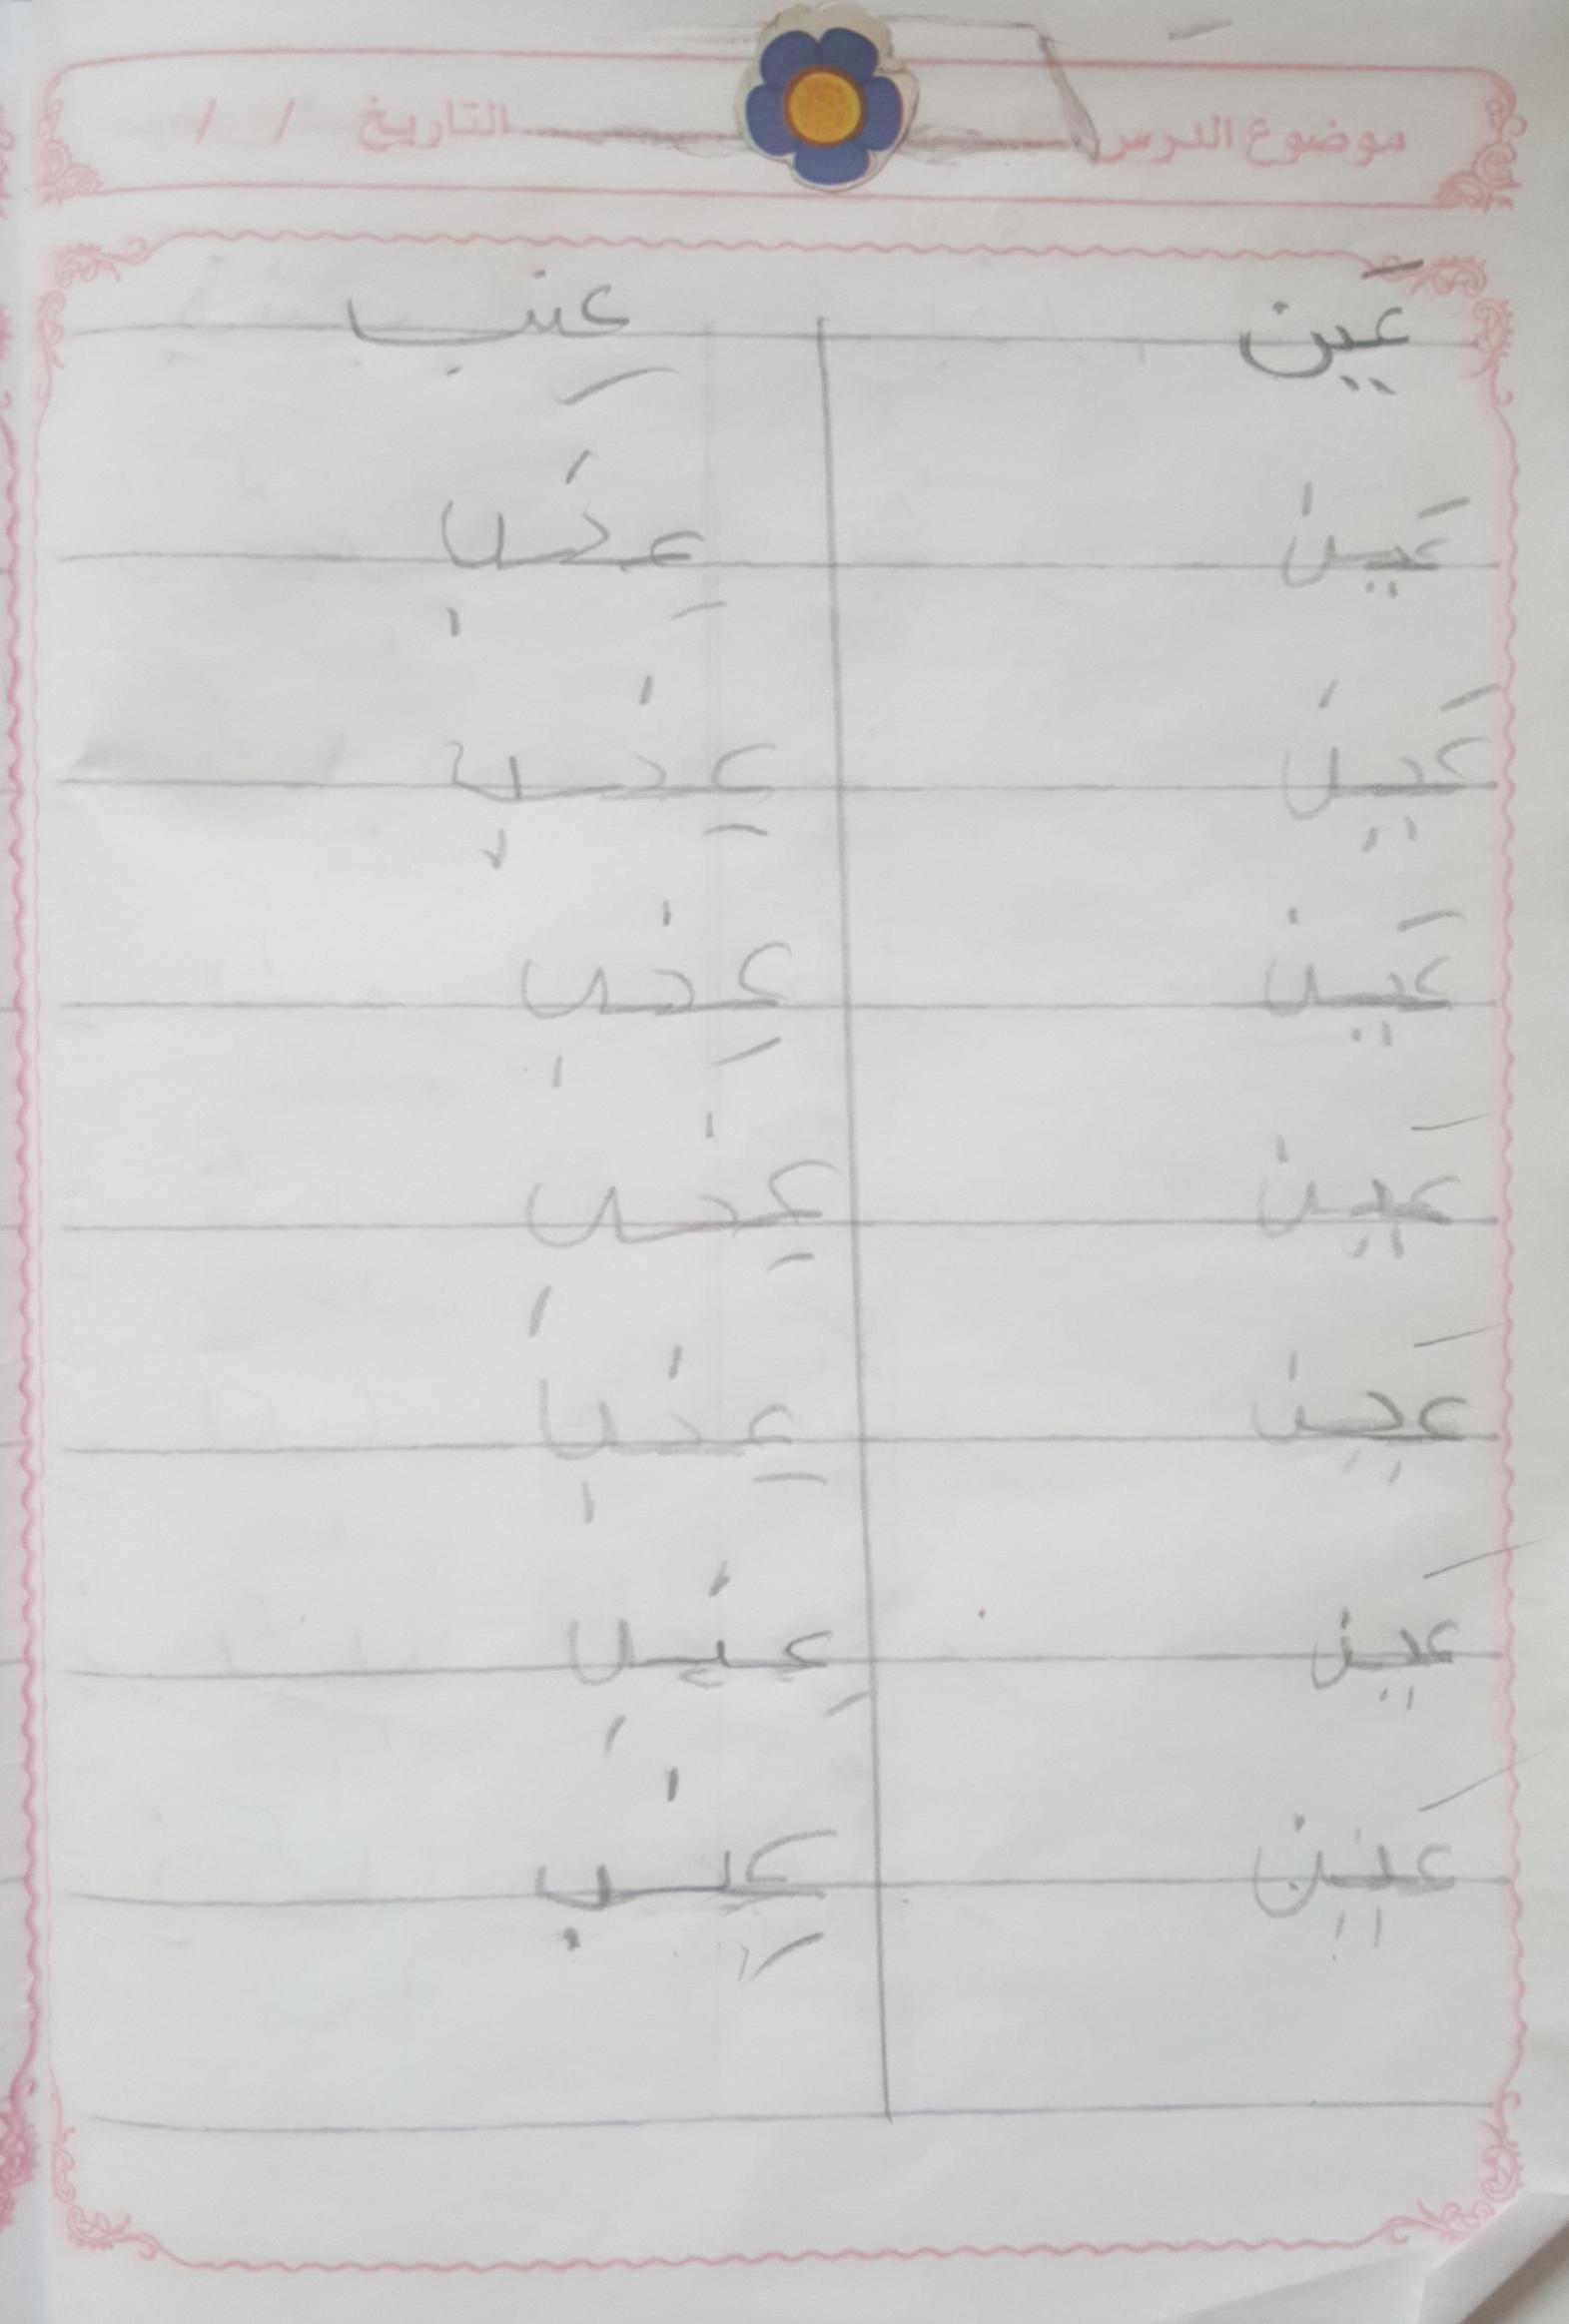 موضوع الدرس التاريخ / /
عَين عِنب
عَين عِنب
عَين عِنب
عَين عِنب
عَين عِنب
عَين عِنب
عَين عِنب
عَين عِنب